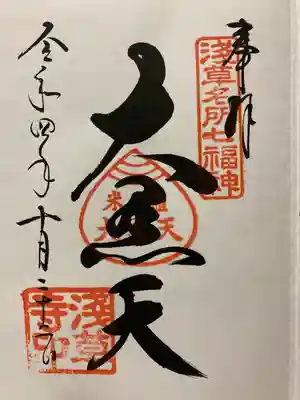 奉拝
浅草名所七福神
大黒天
令和四年十月二十二日
浅草
寺印